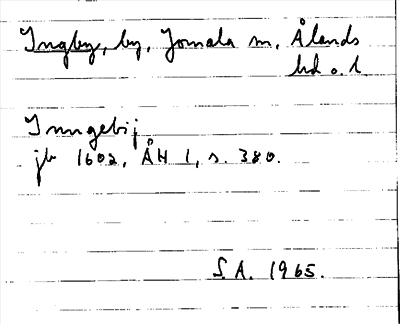 Ingby, by, Jomala sn, Ålands
hd o. l.
Inngebij
jb 1602, ÅH 1, s. 380.
S.A. 1965.